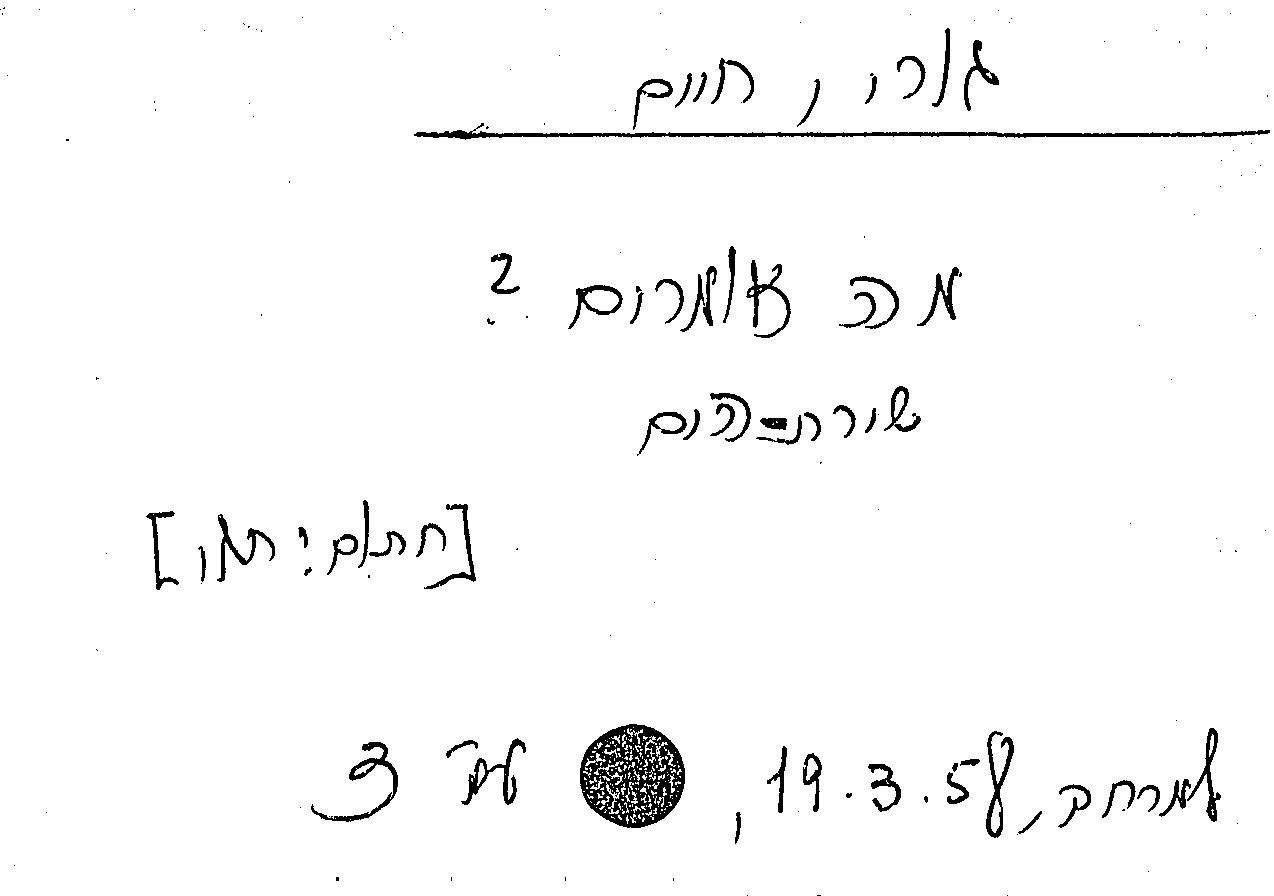 גורי, חיים
מה אומרים ?
שורת-היום
[חתום: ]
למרחב, 19.3.58, עמ' 3